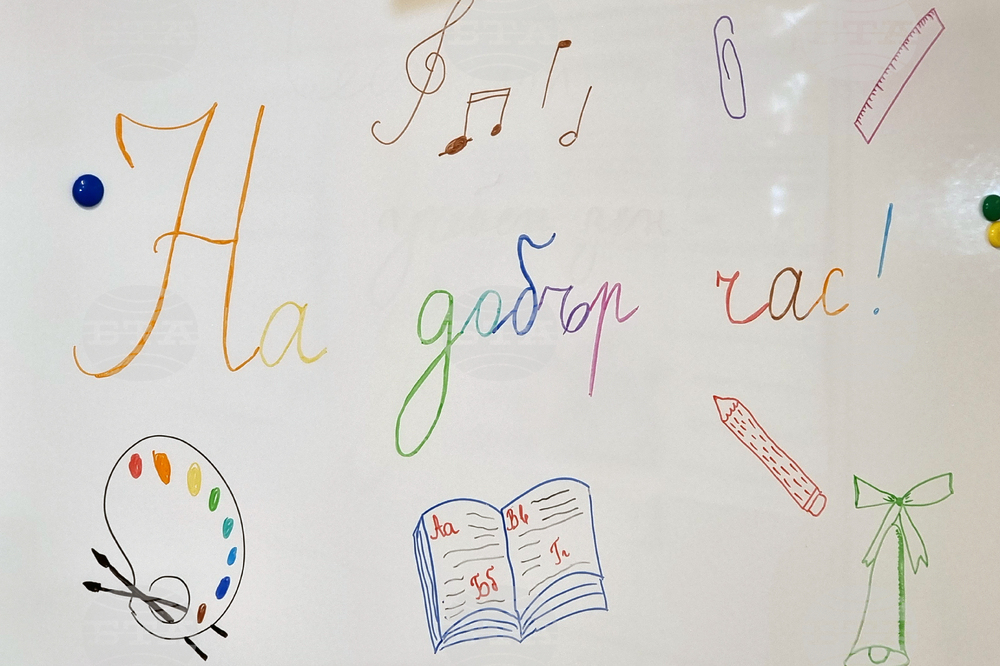 На добър час!
Аа Вв
Бб Гг